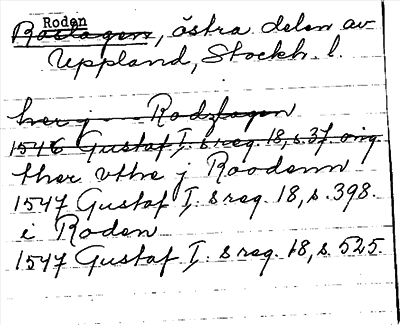 Roden
Roslagen, östra delen av
Uppland, Stockh. l.
her j Rodzlagen
1546 Gustaf I:s reg. 18, s. 37. orig.
ther vthe j Roodenn
1547 Gustaf I:s reg. 18, s. 398.
i Roden
1547 Gustaf I:s reg. 18, s. 525.